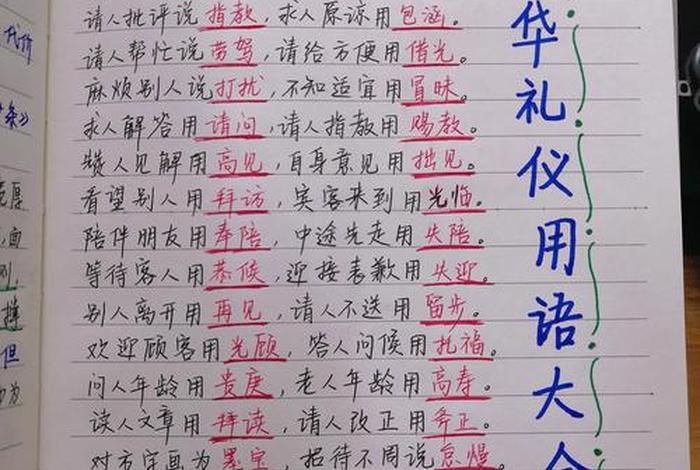 请人批评说指教，求人原谅用包涵。
请人帮忙说劳驾，请给方便用借光。
麻烦别人说打扰，不知适宜用冒昧。
求人解答用请问，请人指教用赐教。
赞人见解用高见，自身意见用拙见。
看望别人用拜访，宾客来到用光临。
陪伴朋友用奉陪，中途先走用失陪。
等待客人用恭候，迎接表歉用失迎。
别人离开用再见，请人不送用留步。
欢迎顾客用光顾，答人问候用托福。
问人年龄用贵庚，老人年龄用高寿。
读人文章用拜读，请人改正用斧正。
对方字画为墨宝，招待不周说怠慢。
华礼仪用语大全
代价
条》
厚
面
则，
但
为